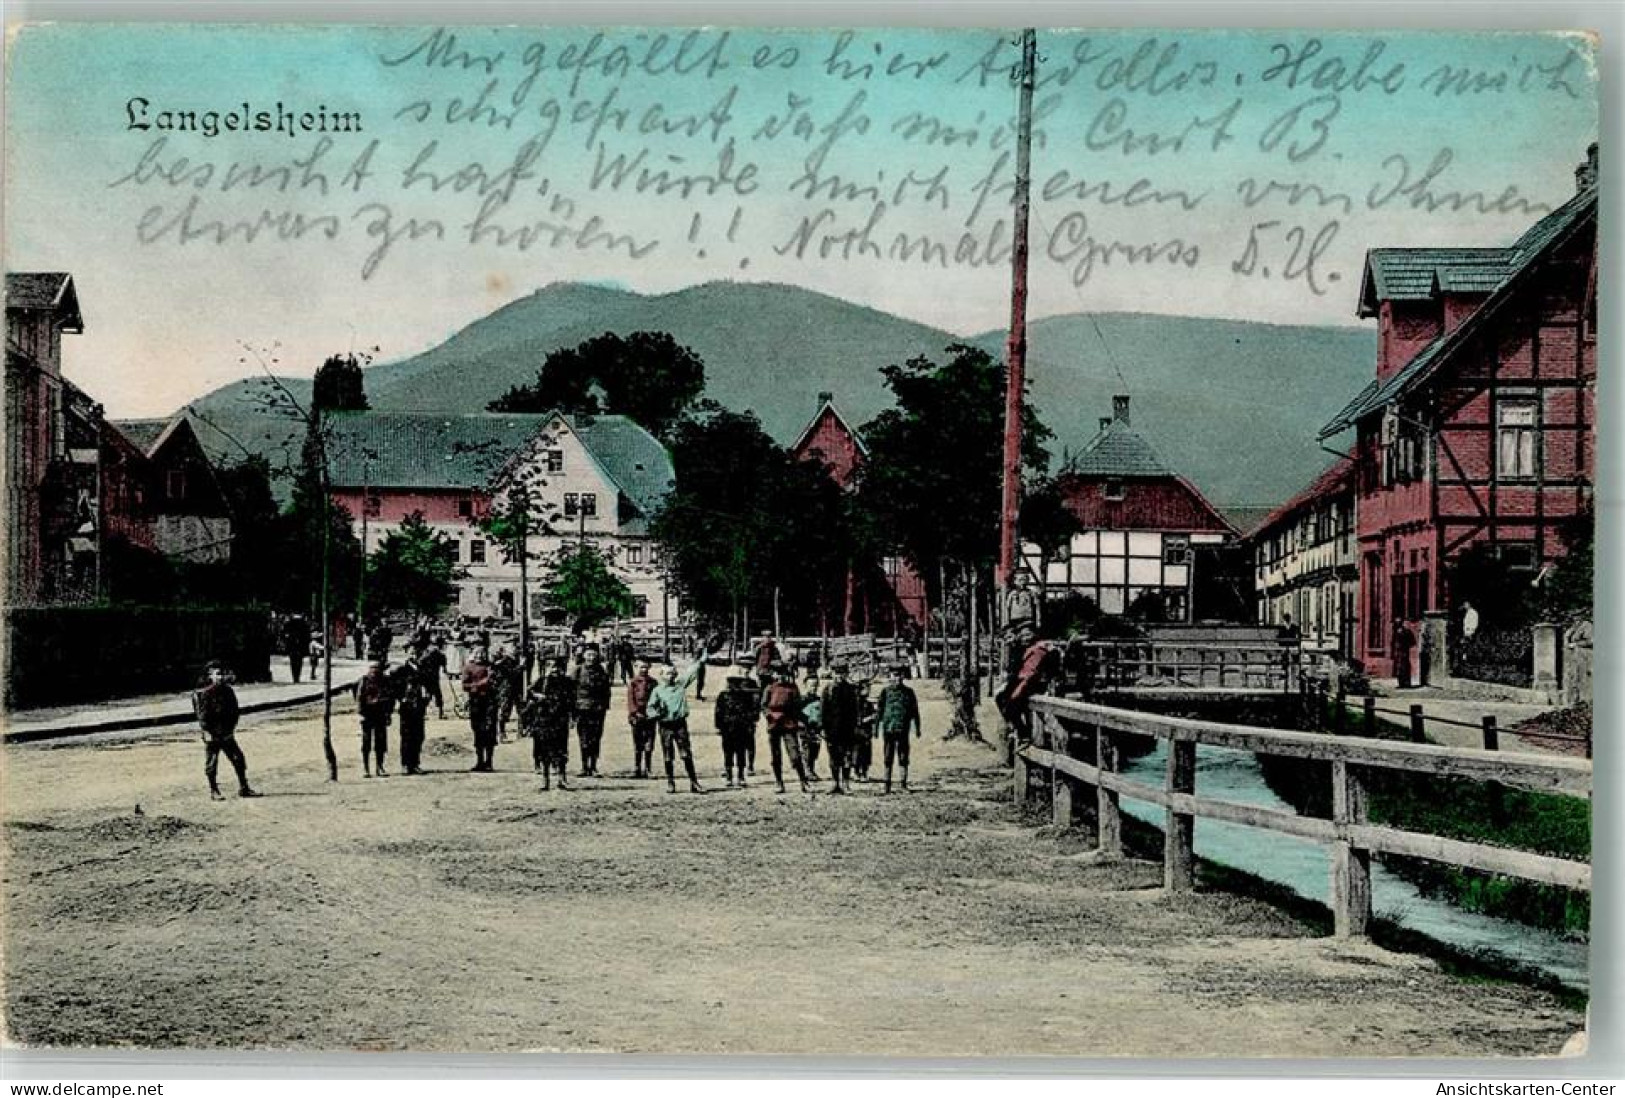 Mir gefällt es hier tadellos. Habe mich
Langelsheim
sehr gefreut, daß mich Curt B.
besucht hat. Würde mich freuen von Ihnen
etwas zu hören!! Nochmals Gruss D. U.
delcampe.com
Ansichtskarten-Center